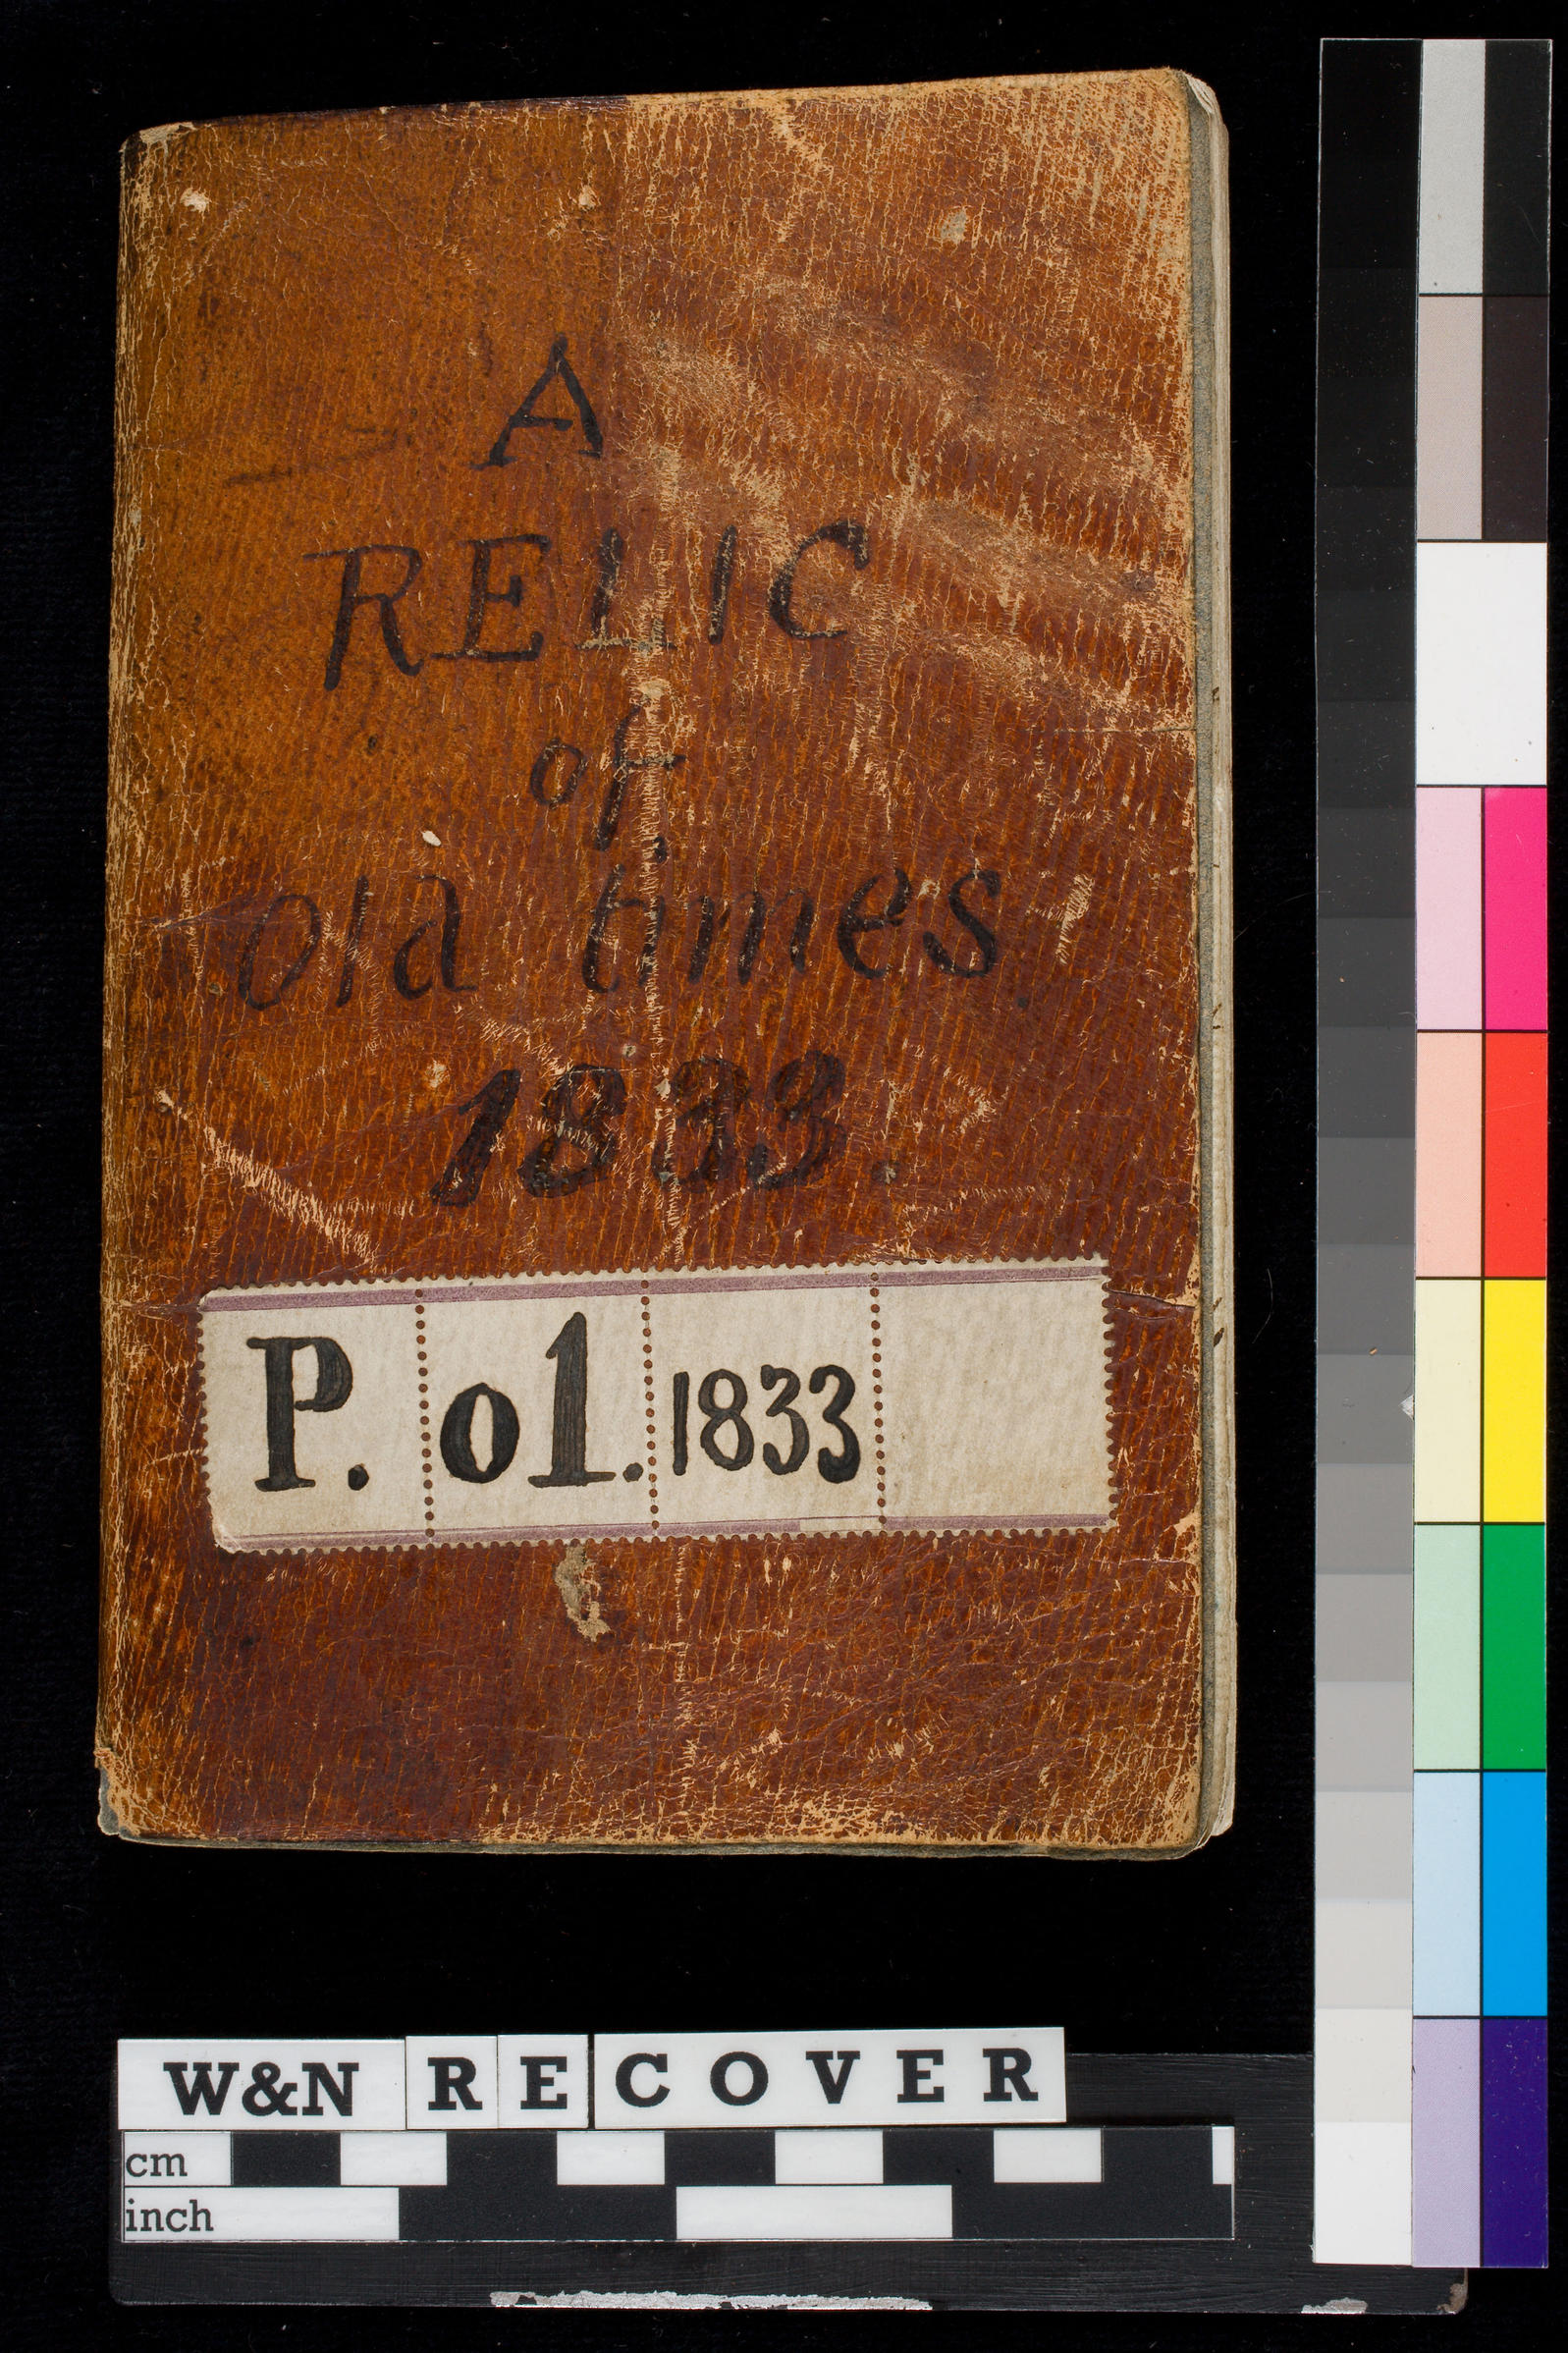 A
RELIC
of
old times.
1833.
P. o1. 1833
W&N RECOVER
cm
inch